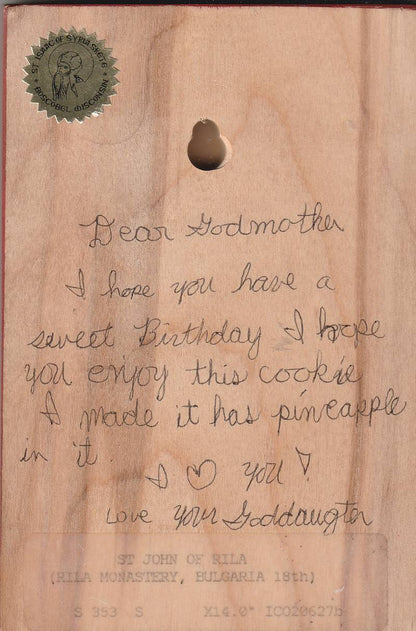 ST ISAAC OF SYRIA SKETE
BOSCOBEL, WISCONSIN
Dear Godmother
I hope you have a
sweet Birthday I hope
you enjoy this cookie
I made it has pineapple
in it.
I ♡ you!
Love your Goddaugter
ST JOHN OF RILA
(RILA MONASTERY, BULGARIA 18th)
S 393 S X14.0" ICO20627b